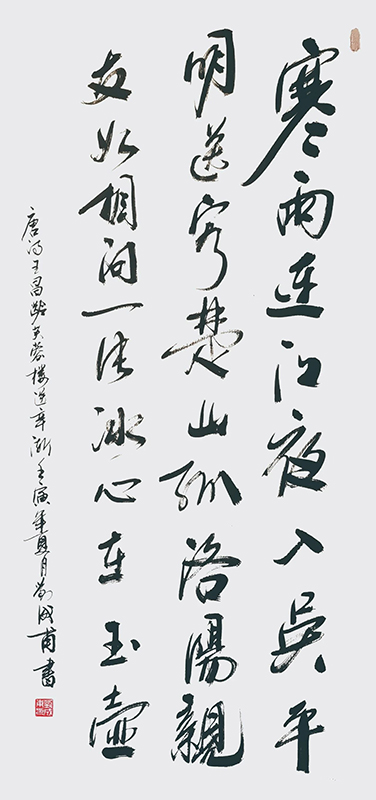 寒雨连江夜入吴平
明送客楚山孤洛陽親
友如相问一片冰心在玉壺
唐诗王昌龄芙蓉楼送辛渐壬寅年夏月国甫書